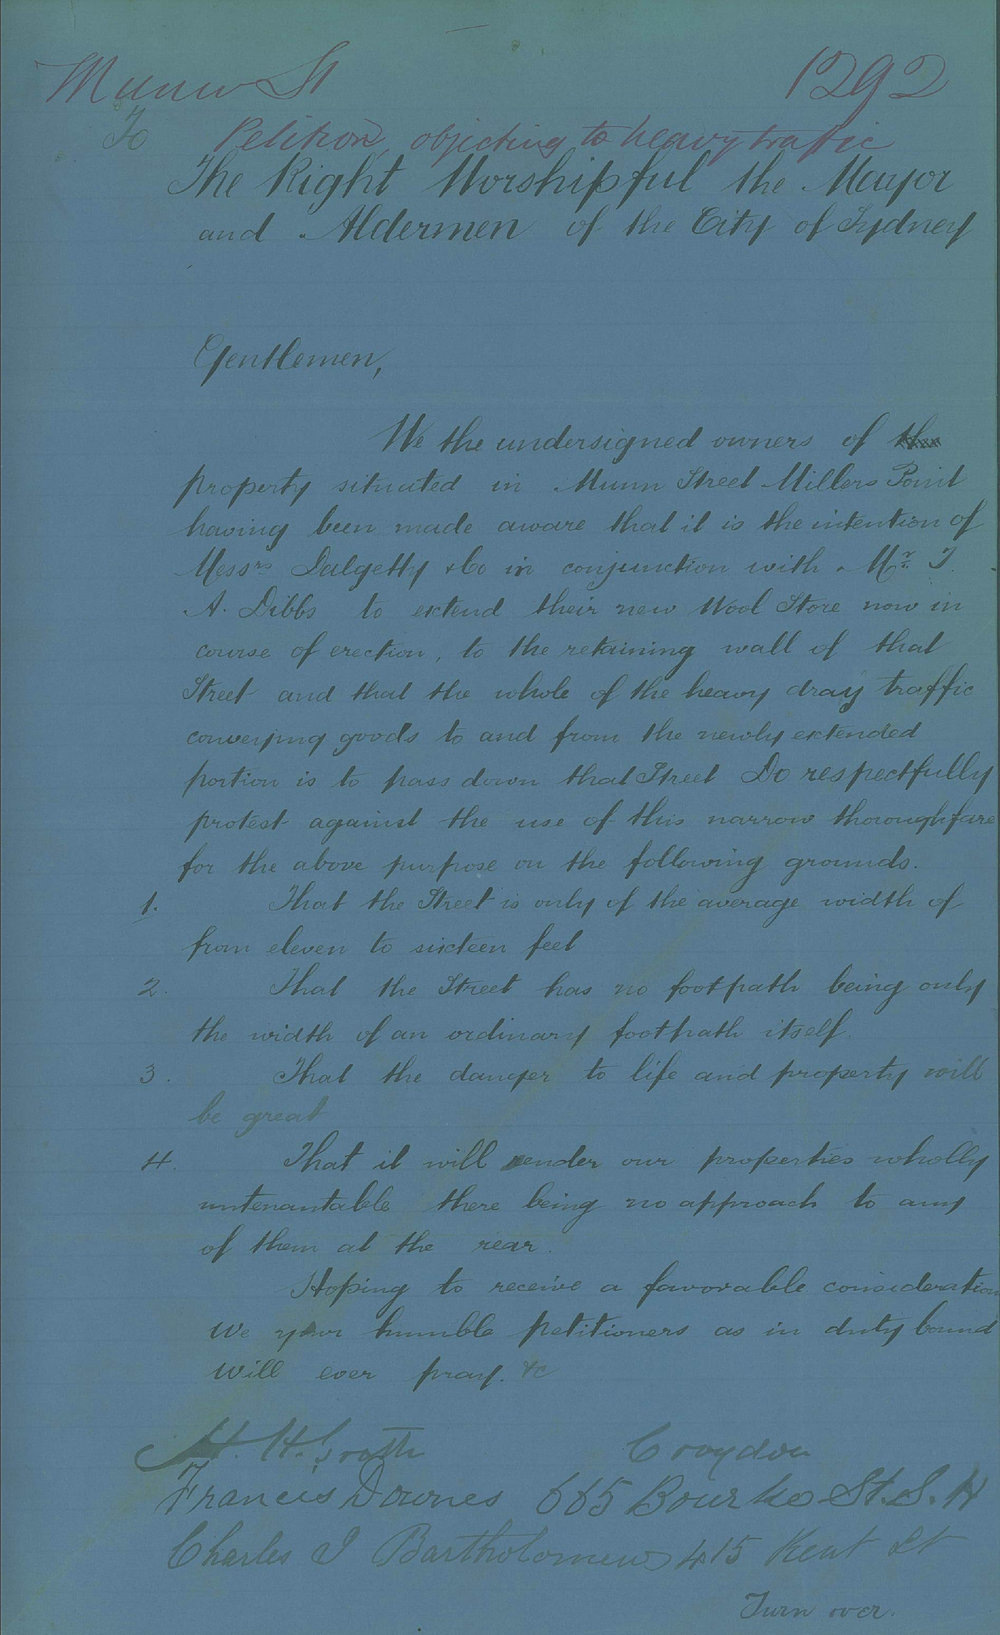 Munn St 1292
To Petition, objecting to heavy traffic
The Right Worshipful the Mayor
and Aldermen of the City of Sydney
Gentlemen,
We the undersigned owners of
property situated in Munn Street Millers Point
having been made aware that it is the intention of
Messrs Dalgetty & Co in conjunction with Mr. T.
A. Dibbs to extend their new Wool Store now in
course of erection, to the retaining wall of that
Street and that the whole of the heavy dray traffic
conveying goods to and from the newly extended
portion is to pass down that Street Do respectfully
protest against the use of this narrow thoroughfare
for the above purpose on the following grounds.
1. That the Street is only of the average width of
from eleven to sixteen feet
2. That the Street has no footpath being only
the width of an ordinary footpath itself.
3. That the danger to life and property will
be great
4. That it will render our properties wholly
untenantable there being no approach to any
of them at the rear.
Hoping to receive a favorable consideration
We your humble petitioners as in duty bound
will ever pray. &c
H. Croydon
Francis Downes 665 Bourke St. S. H
Charles J Bartholomew 415 Kent St
Turn over.